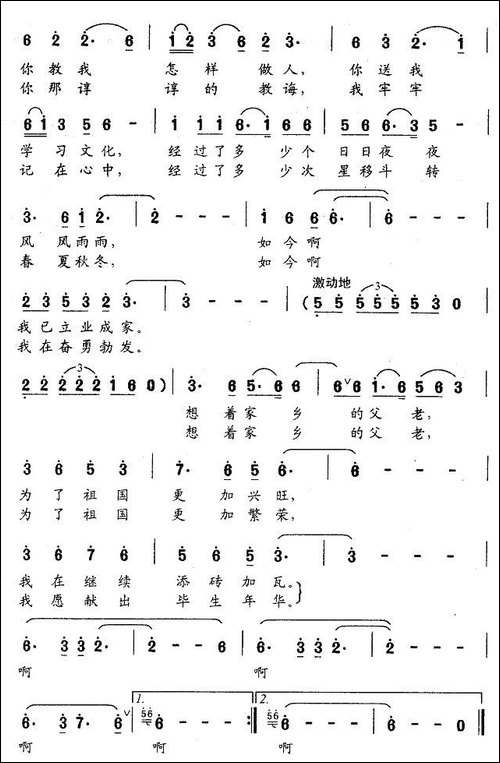 6 2 2· 6 | 1 2 3 6 2 3· | 6 3 2· 1
你教我 怎样做人， 你送我
你那谆 谆的教诲， 我牢牢
6 1 3 5 6 - | 1 1 1 6· 1 6 6 | 5 6 6· 3 5 -
学习文化， 经过了多少个日日夜夜
记在心中， 经过了多少次星移斗转
3· 6 1 2· | 2 - - - | 1 6 6 6· | 6 - - -
风风雨雨， 如今啊
春夏秋冬， 如今啊
激动地
2 3 5 3 2 3· | 3 - - - | (5 5 5 5 5 5 3 0
我已立业成家。
我在奋勇勃发。
2 2 2 2 2 1 6 0) | 3· 6 5· 6 6 | 6 ∨ 6 1· 6 5 6 3
想着家乡的父老，
想着家乡的父老，
3 6 5 3 | 7· 6 5 6· | 6 - - -
为了祖国更加兴旺，
为了祖国更加繁荣，
3 6 7 6 | 5 6 5 3· | 3 - - -
我在继续添砖加瓦。
我愿献出毕生年华。
6· 3 3 2· | 2 - - 6 | 6· 3 3 2· | 2 - - -
啊 啊
1. 2.
6· 3 7· 6 ∨ | 56 6 - - - :|| 56 6· | 6 - - 0
啊 啊 啊